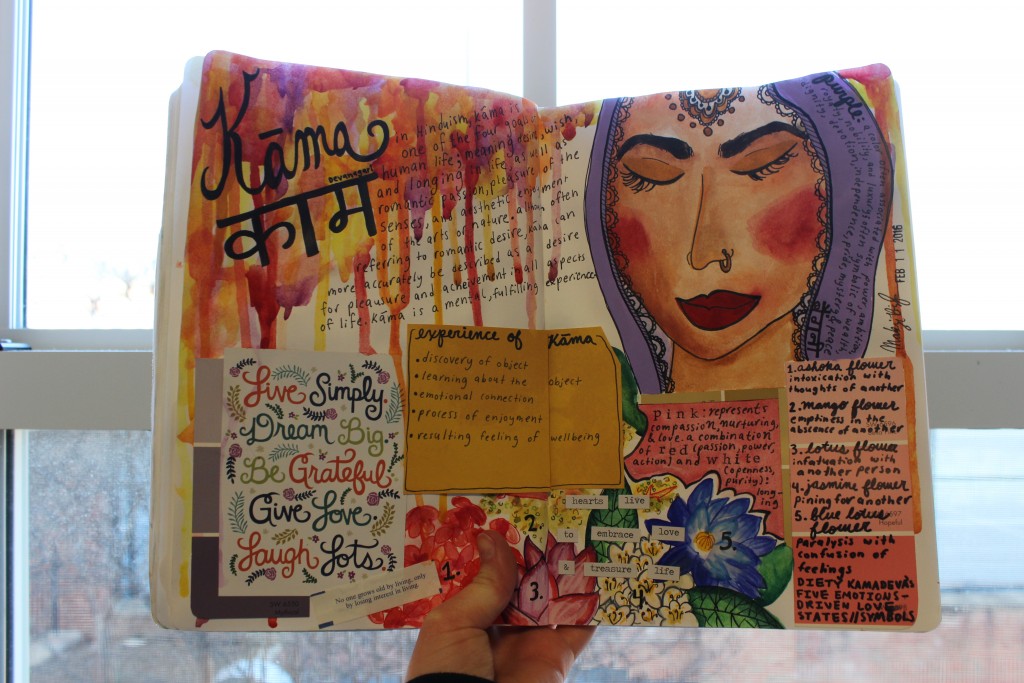 Kāma
DEVANAGARI
काम
in Hinduism, kāma is
one of the four goals
human life; meaning desire, wish,
and longing in life, as well as
romantic passion, pleasure of the
senses, and aesthetic enjoyment
of the arts or nature. although often
referring to romantic desire, kāma can
more accurately be described as a desire
for pleasure and acheivement in all aspects
of life. Kāma is a mental, fulfilling experience
purple: a color often associated with power, ambition,
royalty, nobility, and luxury; often symbolic of wealth,
dignity, devotion, independence, pride, mystery, and
FEB 11 2016
experience of Kāma
• discovery of object
• learning about the object
• emotional connection
• process of enjoyment
• resulting feeling of wellbeing
Live Simply.
Dream Big.
Be Grateful.
Give Love.
Laugh Lots.
No one grows old by living, only
by losing interest in living
Pink: represents
compassion, nurturing,
& love. a combination
of red (passion, power,
action) and white
(openness,
purity):
long-
ing
hearts live
to embrace love
& treasure life
1.
2.
3.
4.
5.
1. ashoka flower
intoxication with
thoughts of another
2. mango flower
emptiness in the
absence of another
3. lotus flower
infatuation with
another person
4. jasmine flower
pining for another
5. Blue lotus
flower
Hopeful
Paralysis with
confusion of
feelings
DIETY KAMADEVA'S
FIVE EMOTIONS-
DRIVEN LOVE
STATES//SYMBOLS